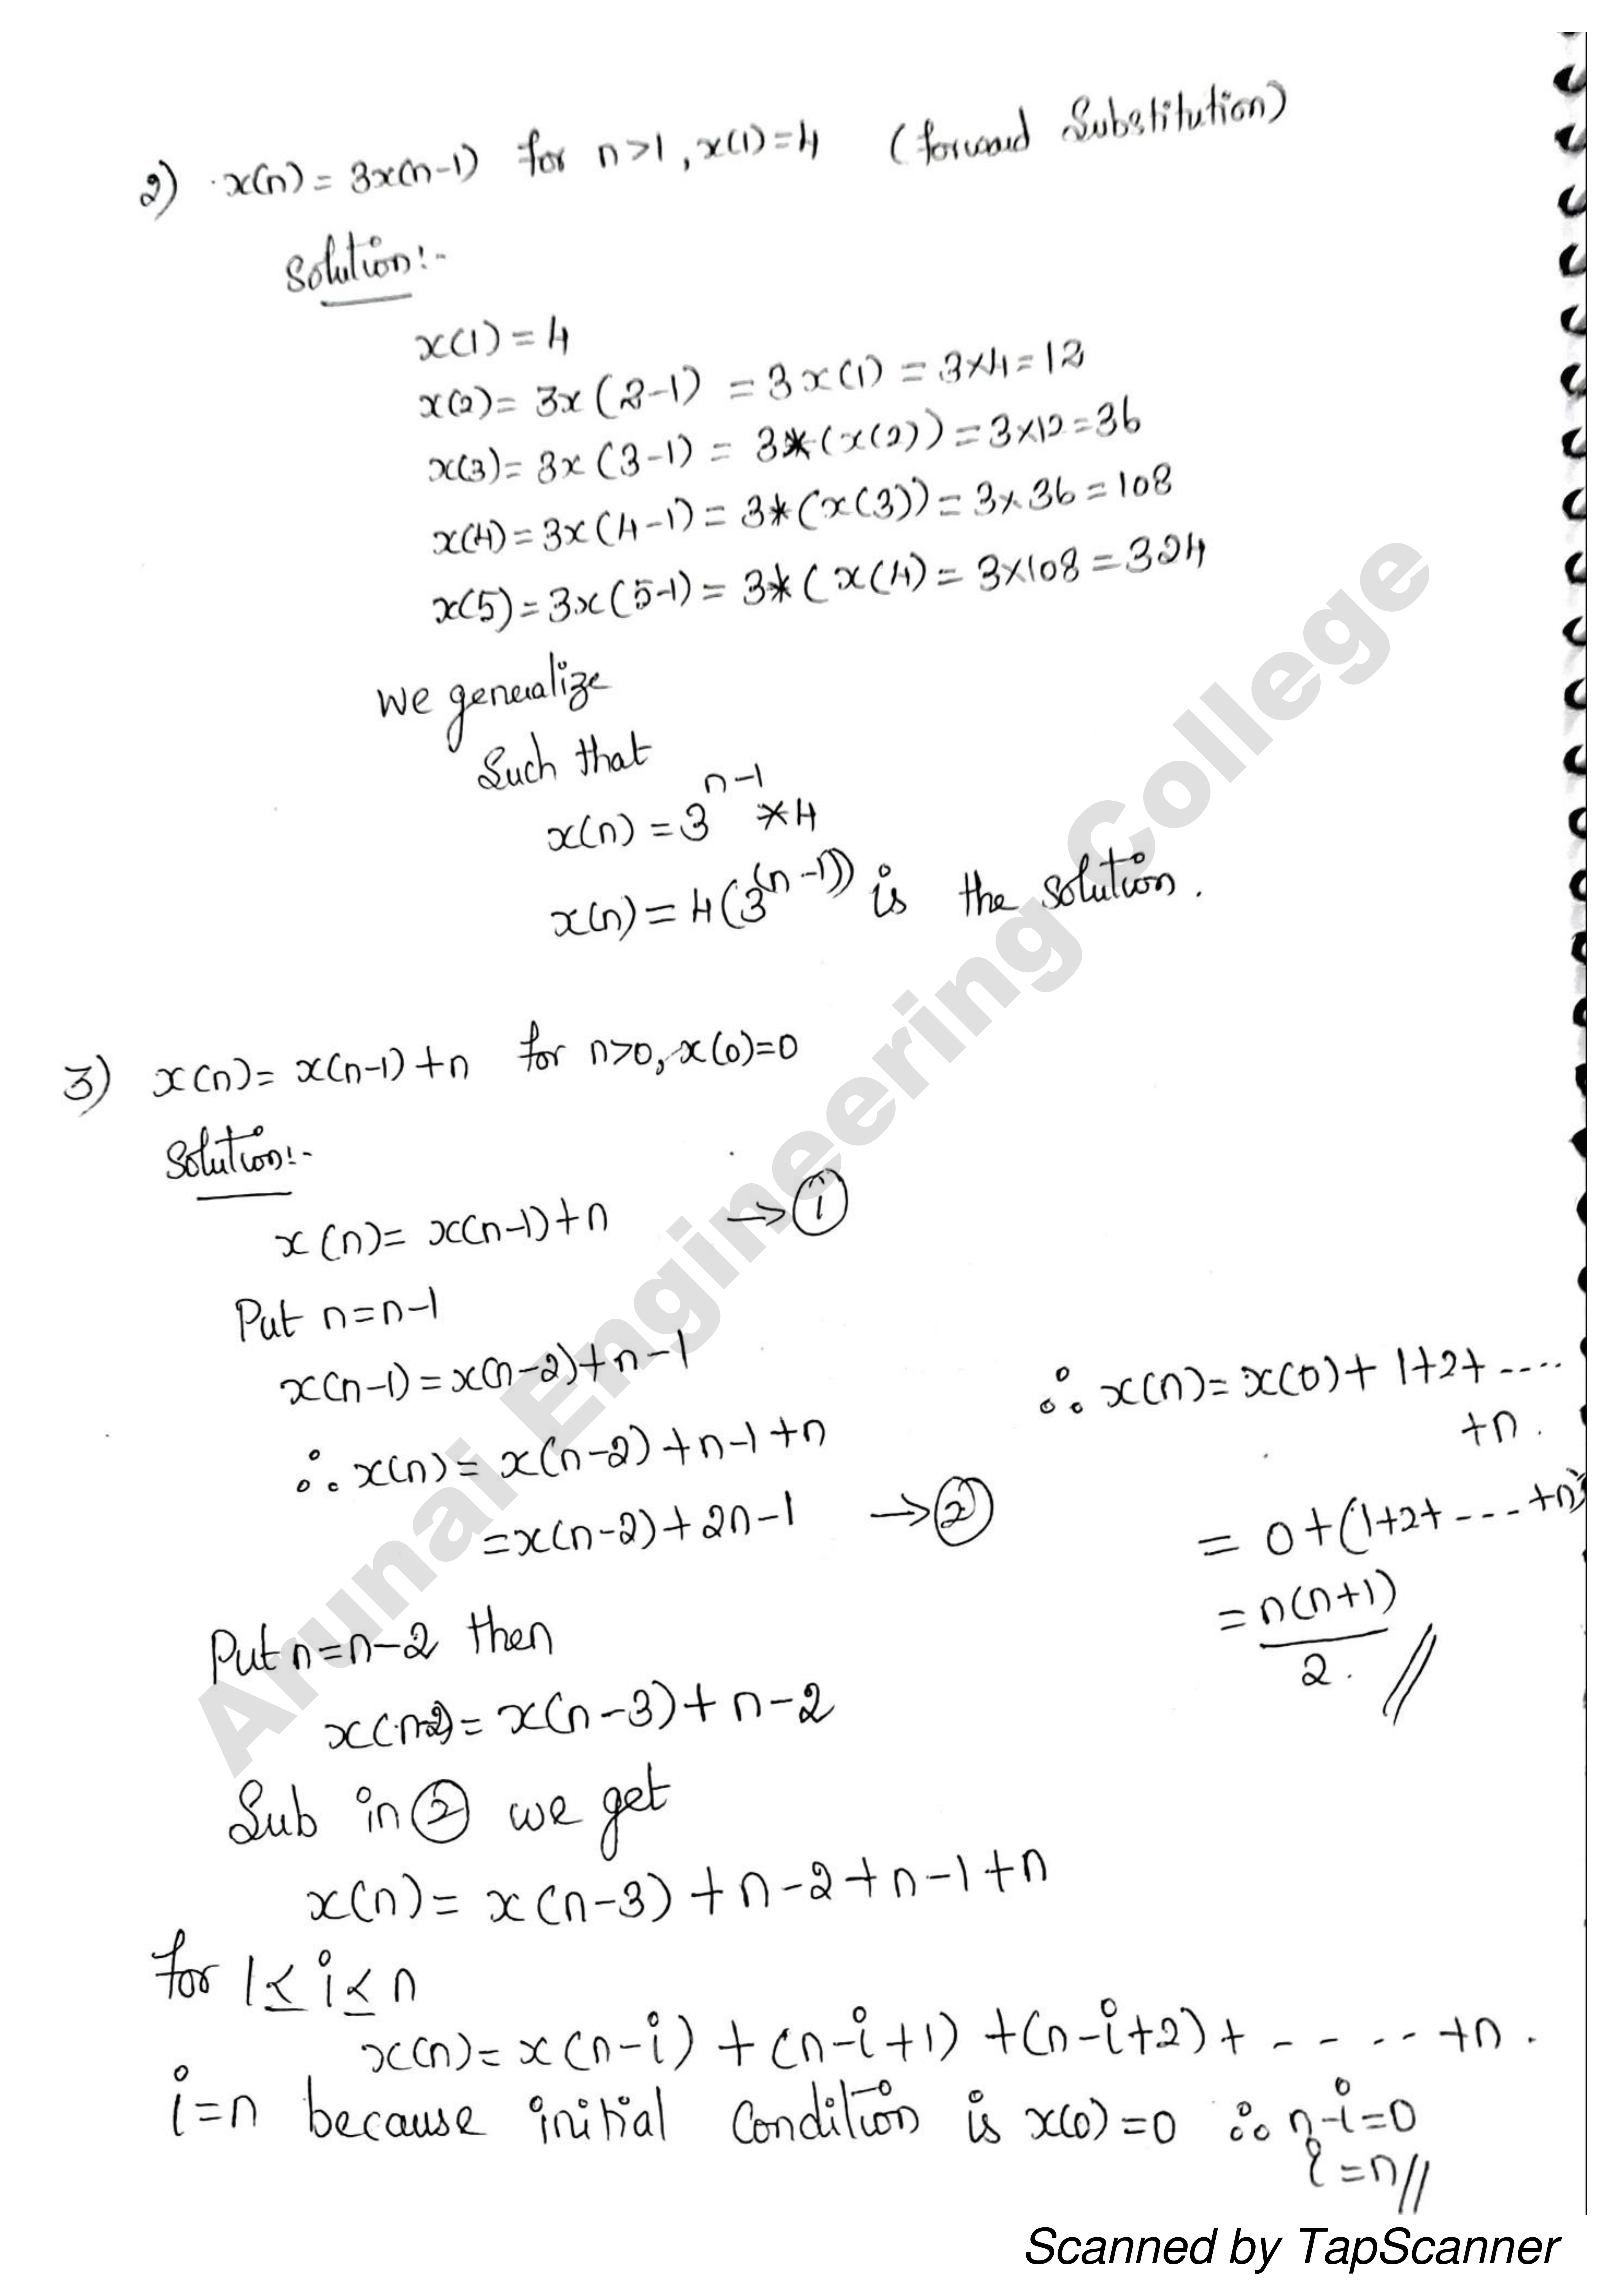 2) x(n) = 3x(n-1) for n>1, x(1)=4 (forward Substitution)
Solution:-
x(1) = 4
x(2) = 3x(2-1) = 3x(1) = 3×4=12
x(3) = 3x(3-1) = 3*(x(2)) = 3×12=36
x(4) = 3x(4-1) = 3*(x(3)) = 3×36=108
x(5) = 3x(5-1) = 3*(x(4) = 3×108=324
We generalize
Such that
x(n) = 3^{n-1} *4
x(n) = 4(3^{(n-1)}) is the solution.
3) x(n) = x(n-1)+n for n>0, x(0)=0
Solution:-
x(n) = x(n-1)+n → ①
Put n=n-1
x(n-1) = x(n-2)+n-1
∴ x(n) = x(n-2)+n-1+n
= x(n-2)+2n-1 → ②
Put n=n-2 then
x(n-2) = x(n-3)+n-2
Sub in ② we get
x(n) = x(n-3)+n-2+n-1+n
for 1≤i≤n
x(n) = x(n-i)+(n-i+1)+(n-i+2)+ - - - - +n.
i=n because initial Condition is x(0)=0 ∴ n-i=0
i=n//
∴ x(n) = x(0)+1+2+ ----
+n.
= 0+(1+2+ ---+n)
= n(n+1)
2. //
Arunai Engineering College
Scanned by TapScanner